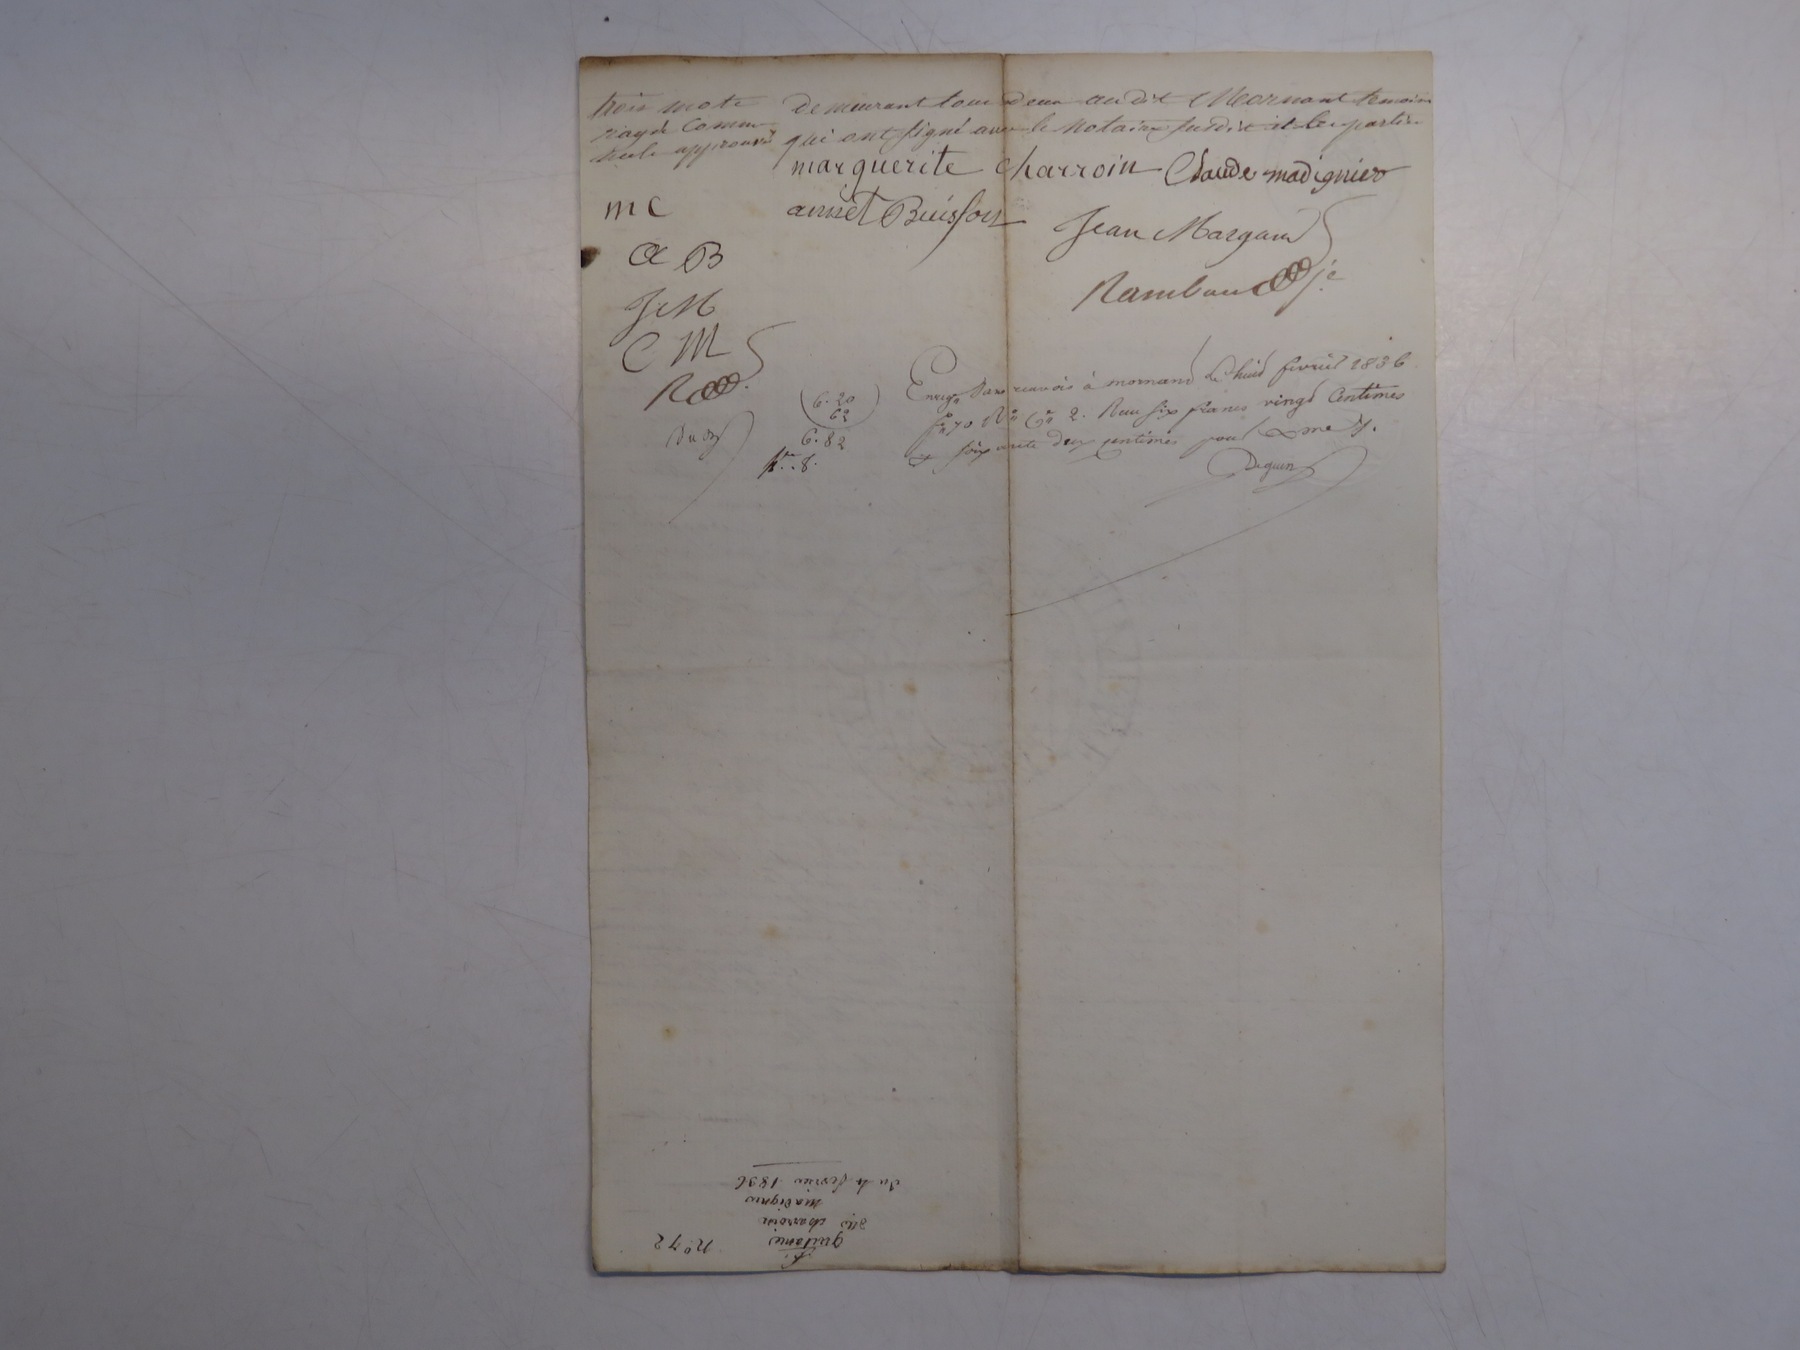 trois mots
rayé comme
nuls approuvé
demeurant tous deux audit Mornant temoins
qui ont signé avec le notaire susdit et les parties
marguerite charroin Claude madignier
annet Buisson Jean Margand
Rambaud je
m C
a B
J M
C M
R
6. 20
62
6. 82
Enreg. à mornant le huit fevrier 1836
f° 70 R° C. 2. Reçu six francs vingt Centimes
& soixante deux centimes pour
Deguin
n° 72
quitance
charroin
madignier
du 4 fevrier 1836